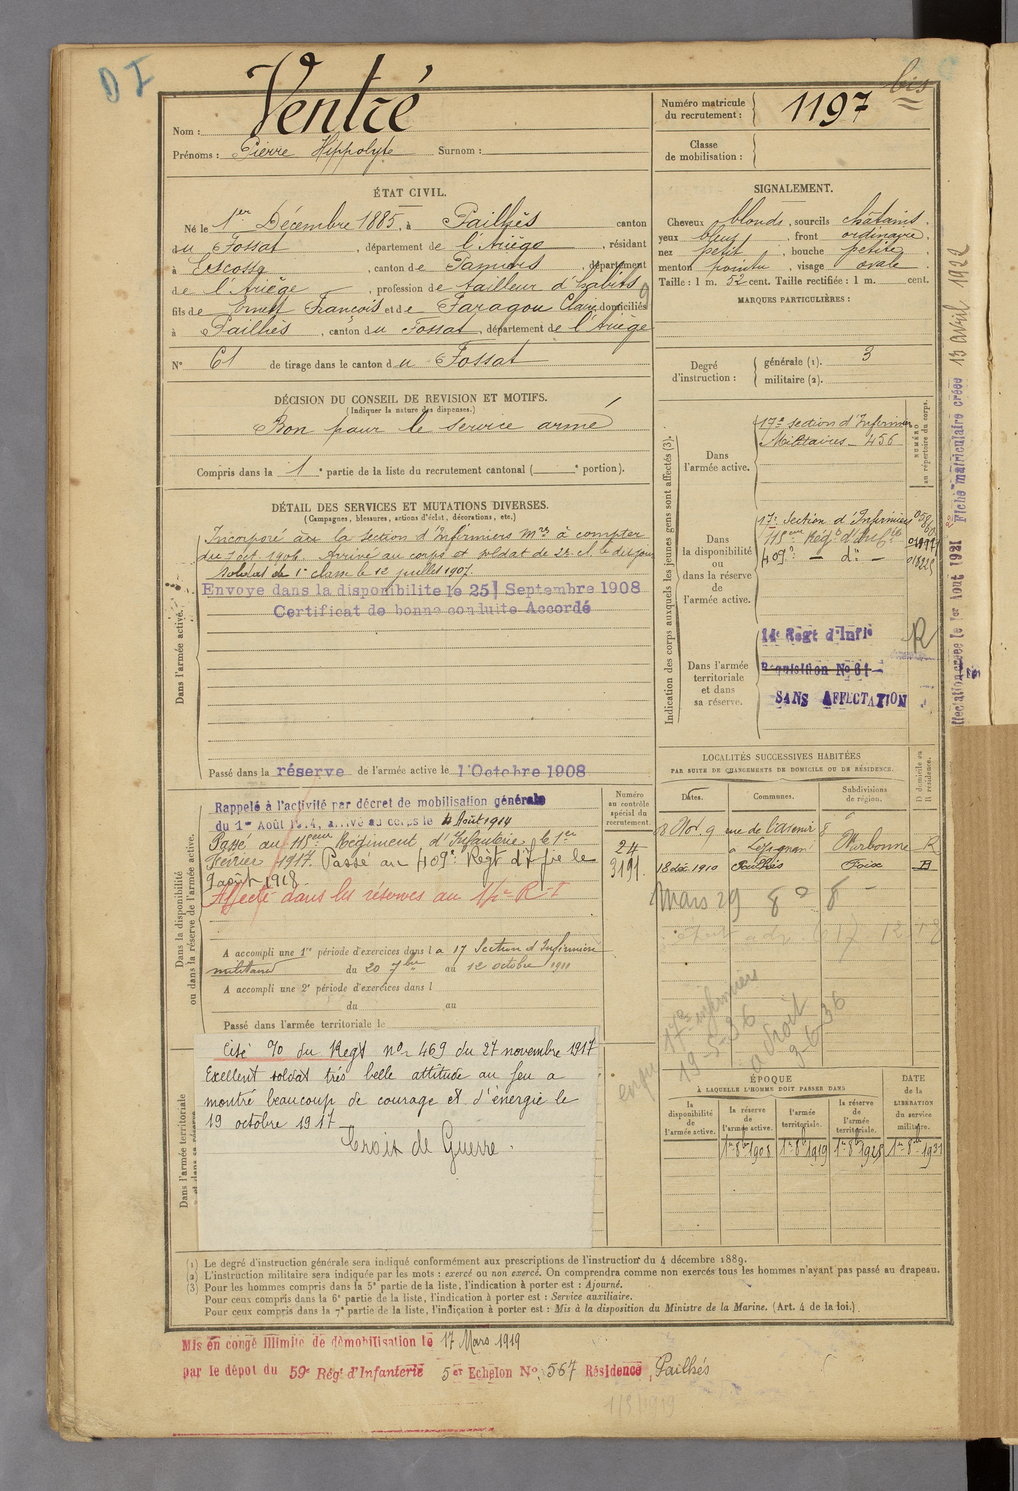 D I
bis
Nom : Ventré
Prénoms : Pierre Hippolyte Surnom :
Numéro matricule du recrutement : 1197
Classe de mobilisation :
ÉTAT CIVIL.
Né le 1er Décembre 1885, à Pailhès canton
du Fossat, département de l'Ariège, résidant
à Escosse, canton de Pamiers, département
de l'Ariège, profession de tailleur d'habits
fils de Ernest François et de Faragou Claire domiciliés
à Pailhès, canton du Fossat, département de l'Ariège
N° 61 de tirage dans le canton du Fossat
SIGNALEMENT.
Cheveux blonds, sourcils châtains.
yeux bleus, front ordinaire.
nez petit, bouche petite.
menton pointu, visage ovale.
Taille : 1 m. 52 cent. Taille rectifiée : 1 m. cent.
MARQUES PARTICULIÈRES :
Degré d'instruction :
générale (1). 3
militaire (2).
DÉCISION DU CONSEIL DE REVISION ET MOTIFS.
(Indiquer la nature des dispenses.)
Bon pour le service armé
Compris dans la 1e partie de la liste du recrutement cantonal ( e portion).
DÉTAIL DES SERVICES ET MUTATIONS DIVERSES.
(Campagnes, blessures, actions d'éclat, décorations, etc.)
Dans l'armée active.
Incorporé à la Section d'Infirmiers Mres à compter
du 7 oct 1906. Arrivé au corps et soldat de 2e cl. le dit jour
soldat de 1e classe le 12 juillet 1907
Envoye dans la disponibilite le 25 Septembre 1908
Certificat de bonne conduite Accordé
Passé dans la réserve de l'armée active le 1 Octobre 1908
Indication des corps auxquels les jeunes gens sont affectés (3).
NUMÉRO au répertoire du corps.
Dans l'armée active.
17e section d'Infirmiers
Militaires - 456
Dans la disponibilité ou dans la réserve de l'armée active.
17e Section d'Infirmiers
118eme Régt d'Inf
409e - d° -
Dans l'armée territoriale et dans sa réserve.
14e Régt d'Infie
R
Réquisition No 61
SANS AFFECTATION
Fiche matriculaire créée 13 avril 1922
1er Aout 1921
Dans la disponibilité ou dans la réserve de l'armée active.
Rappelé à l'activité par décret de mobilisation générale
du 1er Août 1914, arrivé au corps le 4 Août 1914
Passé au 118eme Régiment d'Infanterie le 1er
Février 1917. Passé au 409e Régt d'Ifie le
9 août 1918
Affecté dans les réserves au 14e R.I
A accompli une 1re période d'exercices dans la 17 Section d'Infirmiers
militaires du 20 7bre au 12 octobre 1911
A accompli une 2e période d'exercices dans l
du au
Passé dans l'armée territoriale le
Numéro au contrôle spécial du recrutement.
24
3191
LOCALITÉS SUCCESSIVES HABITÉES
PAR SUITE DE CHANGEMENTS DE DOMICILE OU DE RÉSIDENCE.
Dates. Communes. Subdivisions de région. D domicile ou R résidence.
rue de l'avenir
à Lézignan Narbonne R
18 déc 1910 Pailhès Foix D
Mars 29
17e infirmiers
19-5-36
3-6-36
Dans l'armée territoriale et dans sa réserve
Cité %o du Regt n° 469 du 27 novembre 1917
Exellent soldat très belle attitude au feu a
montré beaucoup de courage et d'énergie le
19 octobre 1917
Croix de Guerre.
ÉPOQUE
À LAQUELLE L'HOMME DOIT PASSER DANS
DATE de la LIBÉRATION du service militaire.
la disponibilité de l'armée active. la réserve de l'armée active. l'armée territoriale. la réserve de l'armée territoriale.
1er 8bre 1908 1er 8bre 1919 1er 8bre 1925 1er 8bre 1931
(1) Le degré d'instruction générale sera indiqué conformément aux prescriptions de l'instruction du 4 décembre 1889.
(2) L'instruction militaire sera indiquée par les mots : exercé ou non exercé. On comprendra comme non exercés tous les hommes n'ayant pas passé au drapeau.
(3) Pour les hommes compris dans la 5e partie de la liste, l'indication à porter est : Ajourné.
Pour ceux compris dans la 6e partie de la liste, l'indication à porter est : Service auxiliaire.
Pour ceux compris dans la 7e partie de la liste, l'indication à porter est : Mis à la disposition du Ministre de la Marine. (Art. 4 de la loi.)
Mis en congé illimité de démobilisation le 17 Mars 1919
par le dépot du 59e Régt d'Infanterie 5er Echelon No 567 Résidence, Pailhés